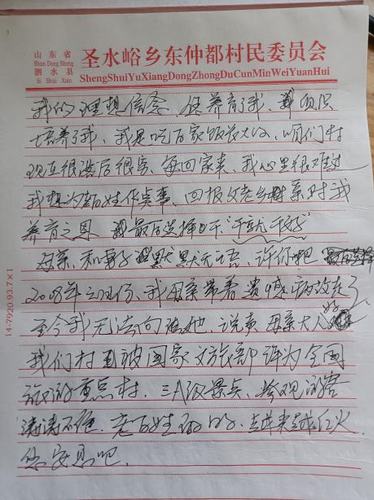 山东省
Shan Dong Sheng
泗水县
Si Shui Xian
圣水峪乡东仲都村民委员会
ShengShuiYuXiangDongZhongDuCunMinWeiYuanHui
我的理想信念, 供养育了我,
培养了我, 我是吃百家饭长大的, 咱们村
现在很落后很穷, 每回家来, 我心里很难过
我想为百姓作点事, 回报父老乡亲对我
养育之恩, 最后选择
母亲, 和妻子默默无语, 许你吧
2008年 月份, 我母亲带着遗憾病故走了
至今我无法向她说, 母亲大人
我们村已被国家文旅部评为全国
旅游重点村. 三A级景点, 参观游客
涛涛不绝. 老百姓的 越来越红火
您安息吧.
14-7920.93.7×1